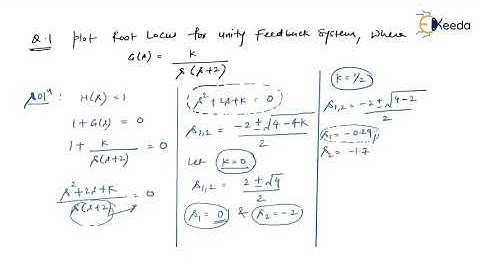 Q.1 Plot Root Locus for unity Feedback System, where
G(s) = K / s(s+2)
Keeda
Solⁿ : H(s) = 1
1 + G(s) = 0
1 + K / s(s+2) = 0
s² + 2s + K / s(s+2) = 0
s² + 2s + K = 0
s₁,₂ = -2 ± √4 - 4K / 2
Let K = 0
s₁,₂ = 2 ± √4 / 2
s₁ = 0 & s₂ = -2
K = 1/2
s₁,₂ = -2 ± √4 - 2 / 2
s₁ = -0.29
s₂ = -1.7